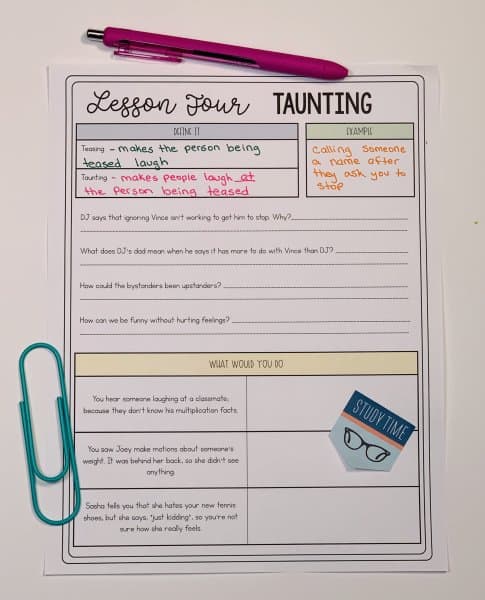 Lesson Four TAUNTING
DEFINE IT
Teasing - makes the person being
teased laugh
Taunting - makes people laugh at
the person being teased
EXAMPLE
Calling someone
a name after
they ask you to
stop
DJ says that ignoring Vince isn't working to get him to stop. Why?
What does DJ's dad mean when he says it has more to do with Vince than DJ?
How could the bystanders been upstanders?
How can we be funny without hurting feelings?
WHAT WOULD YOU DO
You hear someone laughing at a classmate,
because they don't know his multiplication facts.
You saw Joey make motions about someone's
weight. It was behind her back, so she didn't see
anything.
Sasha tells you that she hates your new tennis
shoes, but she says, "just kidding", so you're not
sure how she really feels.
STUDY TIME